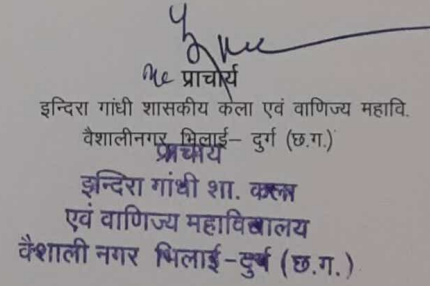 प्राचार्य
इन्दिरा गांधी शासकीय कला एवं वाणिज्य महावि.
वैशालीनगर भिलाई– दुर्ग (छ.ग.)
प्राचार्य
इन्दिरा गांधी शा. कला
एवं वाणिज्य महाविद्यालय
वैशाली नगर भिलाई-दुर्ग (छ.ग.)